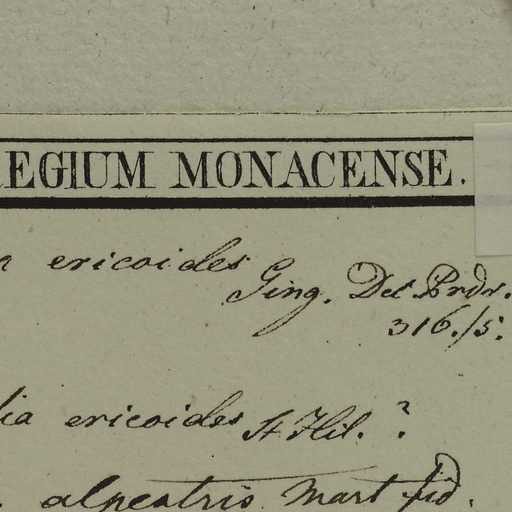 REGIUM MONACENSE.
ericoides
Ging. Dec Prdr.
316./5.
lia ericoides St Hil. ?
alpestris Mart